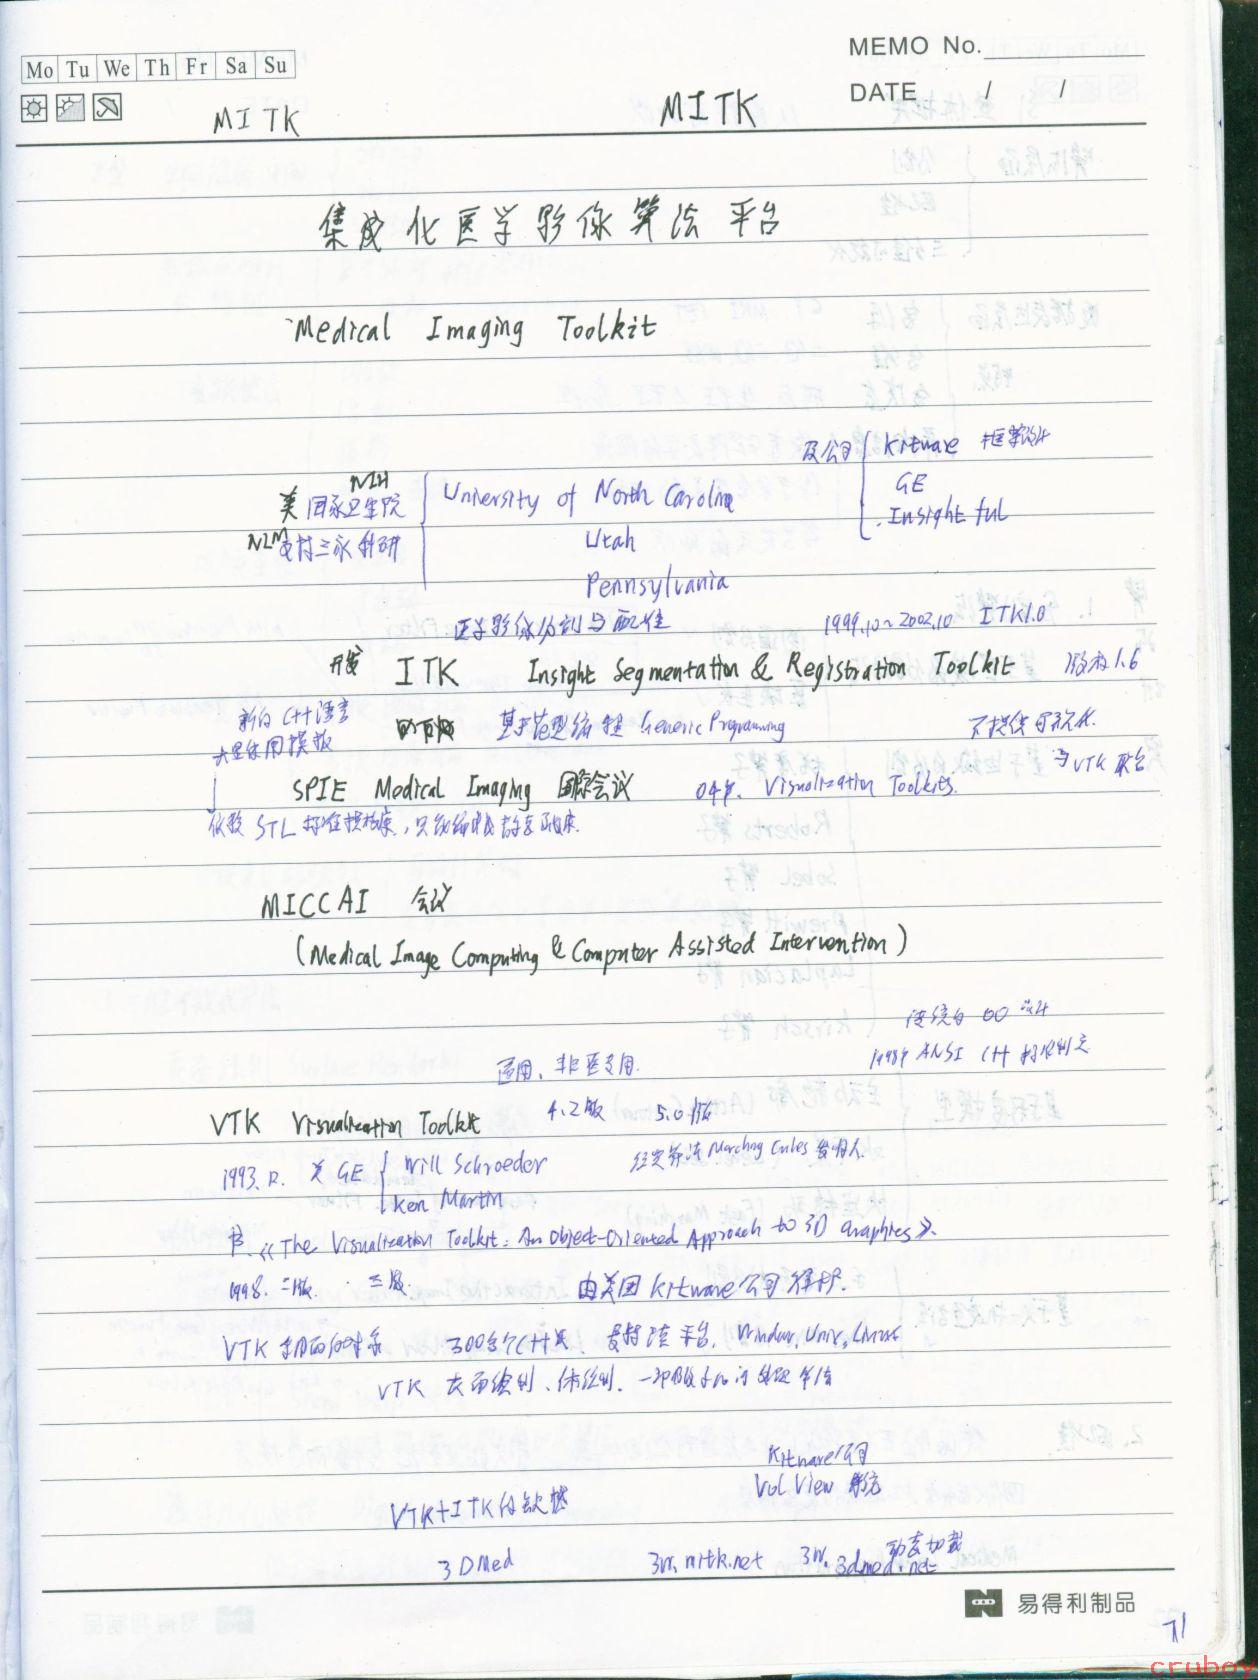 Mo Tu We Th Fr Sa Su
MEMO No.
DATE / /
MITK MITK
集成化医学影像算法平台
Medical Imaging Toolkit
及公司 Kitware 框架设计
NIH
美国家卫生院 University of North Carolina GE
Insightful
NLM 支持三家科研 Utah
Pennsylvania
医学影像分割与配准 1999.10~2002.10 ITK1.0
开发 ITK Insight Segmentation & Registration Toolkit 1.6
新的C++语言 基于范型编程 Generic Programming 不提供可视化
大量使用模板 与VTK联合
SPIE Medical Imaging 国际会议 04年. Visualization Toolkits.
依赖 STL 标准模板库,只能编成静态
MICCAI 会议
(Medical Image Computing & Computer Assisted Intervention)
传统的 OO 设计
通用、非医专用. 1998年 ANSI C++ 标准制定
VTK Visualization Toolkit 4.2版 5.0版
1993.12. 美 GE Will Schroeder 经典算法 Marching Cubes 发明人.
Ken Martin
书.《The Visualization Toolkit: An Object-Oriented Approach to 3D Graphics》.
1998. 二版. 三版. 由美国 Kitware 公司维护.
VTK 面向对象 300多个C++类 支持 平台. Window, Unix, Linux
VTK 表面绘制、体绘制.
Kitware公司
VolView 系统
VTK+ITK的缺憾
动态加载
3DMed 3w.mitk.net 3w.3dmed.net
易得利制品
71
cruboy